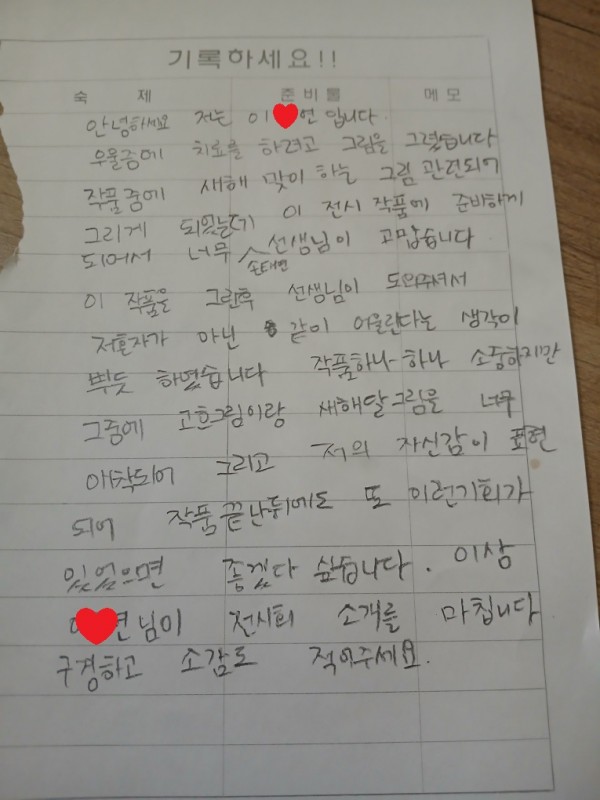 기록하세요!!
숙 제 준비물 메모
안녕하세요 저는 이 연 입니다.
우울증에 치료를 하려고 그림을 그렸습니다
작품중에 새해 맞이 하는 그림 관련되어
그리게 되었는데 이 전시 작품에 준비하게
되어서 너무 손태연 선생님이 고맙습니다
이 작품을 그린후 선생님이 도와주셔서
저혼자가 아닌 같이 어울린다는 생각이
뿌듯 하였습니다 작품하나 하나 소중하지만
그중에 고흐그림이랑 새해달그림을 너무
애착되어 그리고 저의 자신감이 표현
되어 작품끝난뒤에도 또 이런기회가
있었으면 좋겠다 싶습니다. 이상
연님이 전시회 소개를 마칩니다
구경하고 소감도 적어주세요.